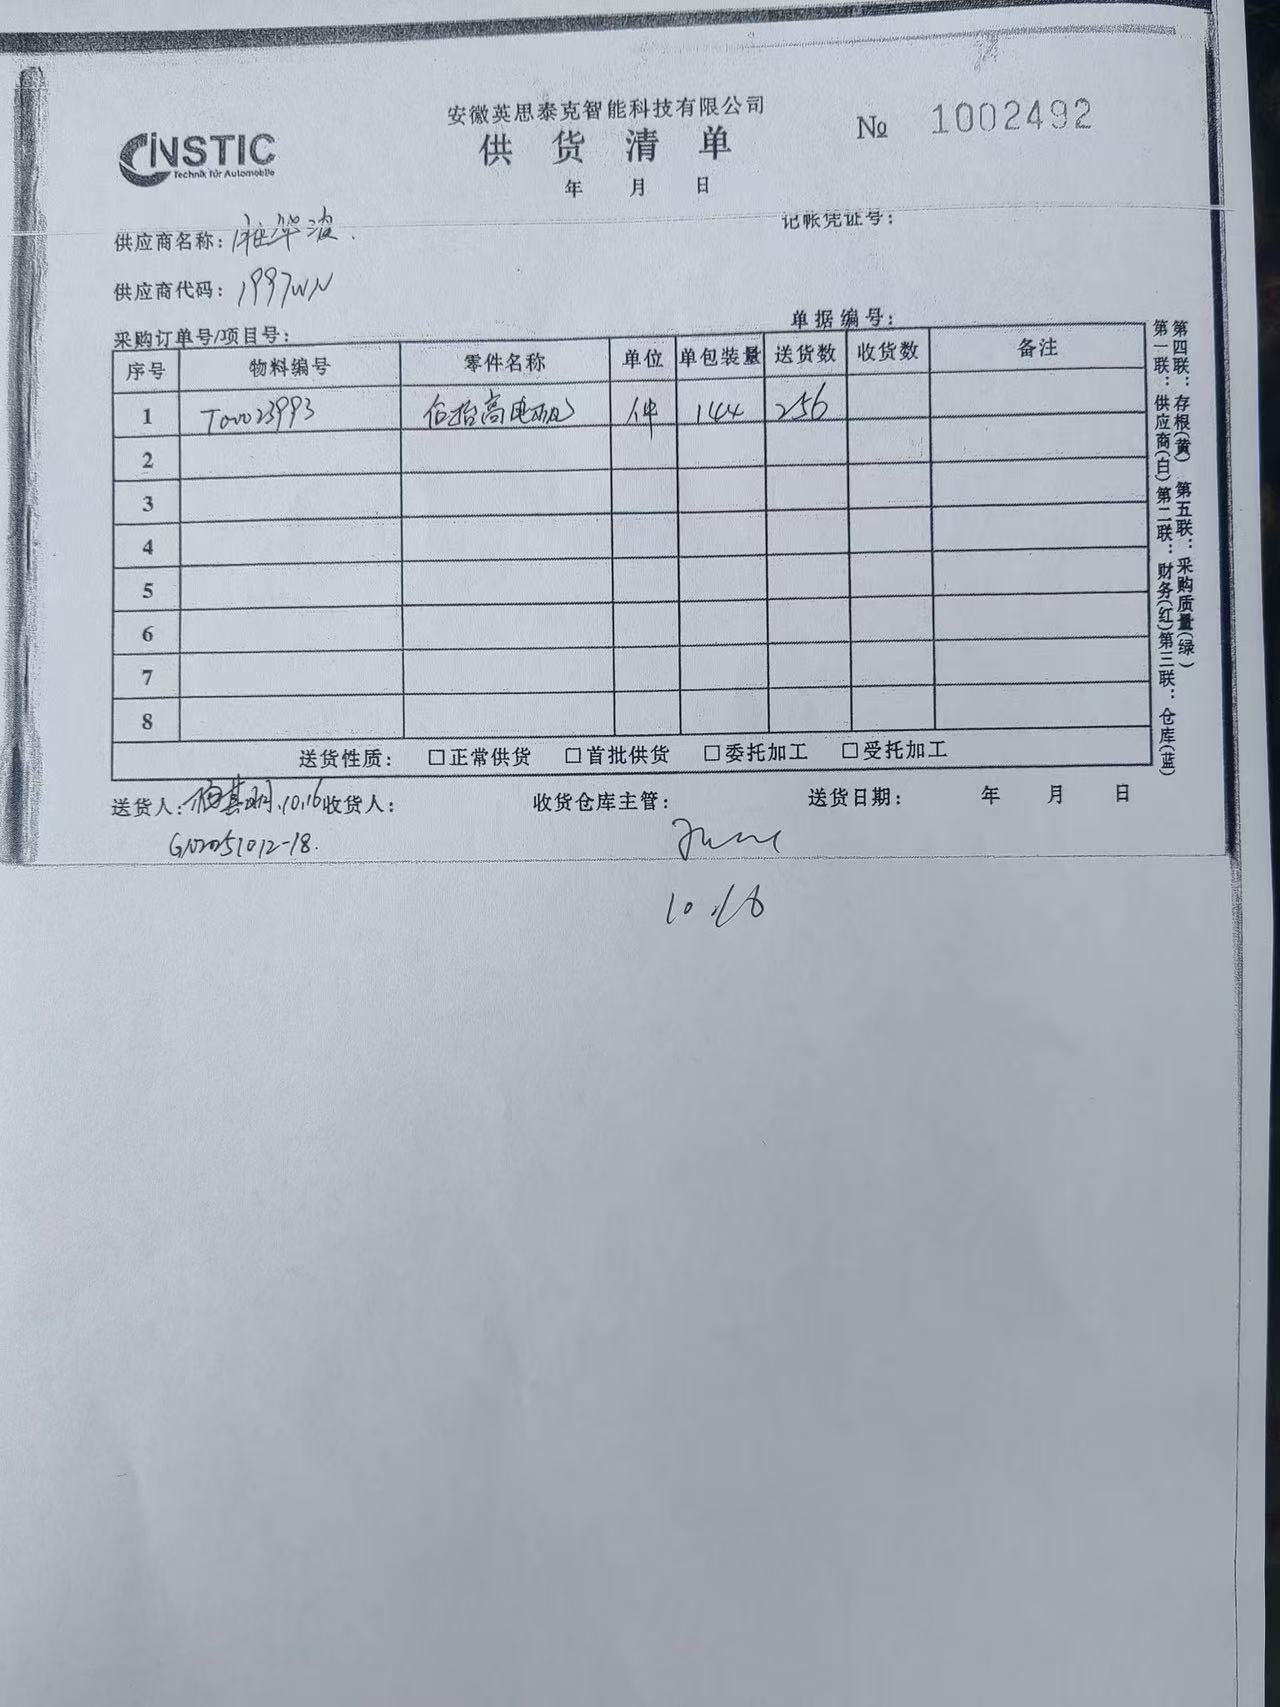 CINSTIC
Technik für Automobile
安徽英思泰克智能科技有限公司
供货清单
№ 1002492
年 月 日
供应商名称: 华波.
记帐凭证号:
供应商代码: 1997WN
采购订单号/项目号:
单据编号:
序号 物料编号 零件名称 单位 单包装量 送货数 收货数 备注
1 T00023993 件 144 256
2
3
4
5
6
7
8
送货性质: □正常供货 □首批供货 □委托加工 □受托加工
送货人: 10.16 收货人: 收货仓库主管: 送货日期: 年 月 日
10.16
第一联:供应商(白)第二联:财务(红)第三联:仓库(蓝)
第四联:存根(黄) 第五联:采购质量(绿)